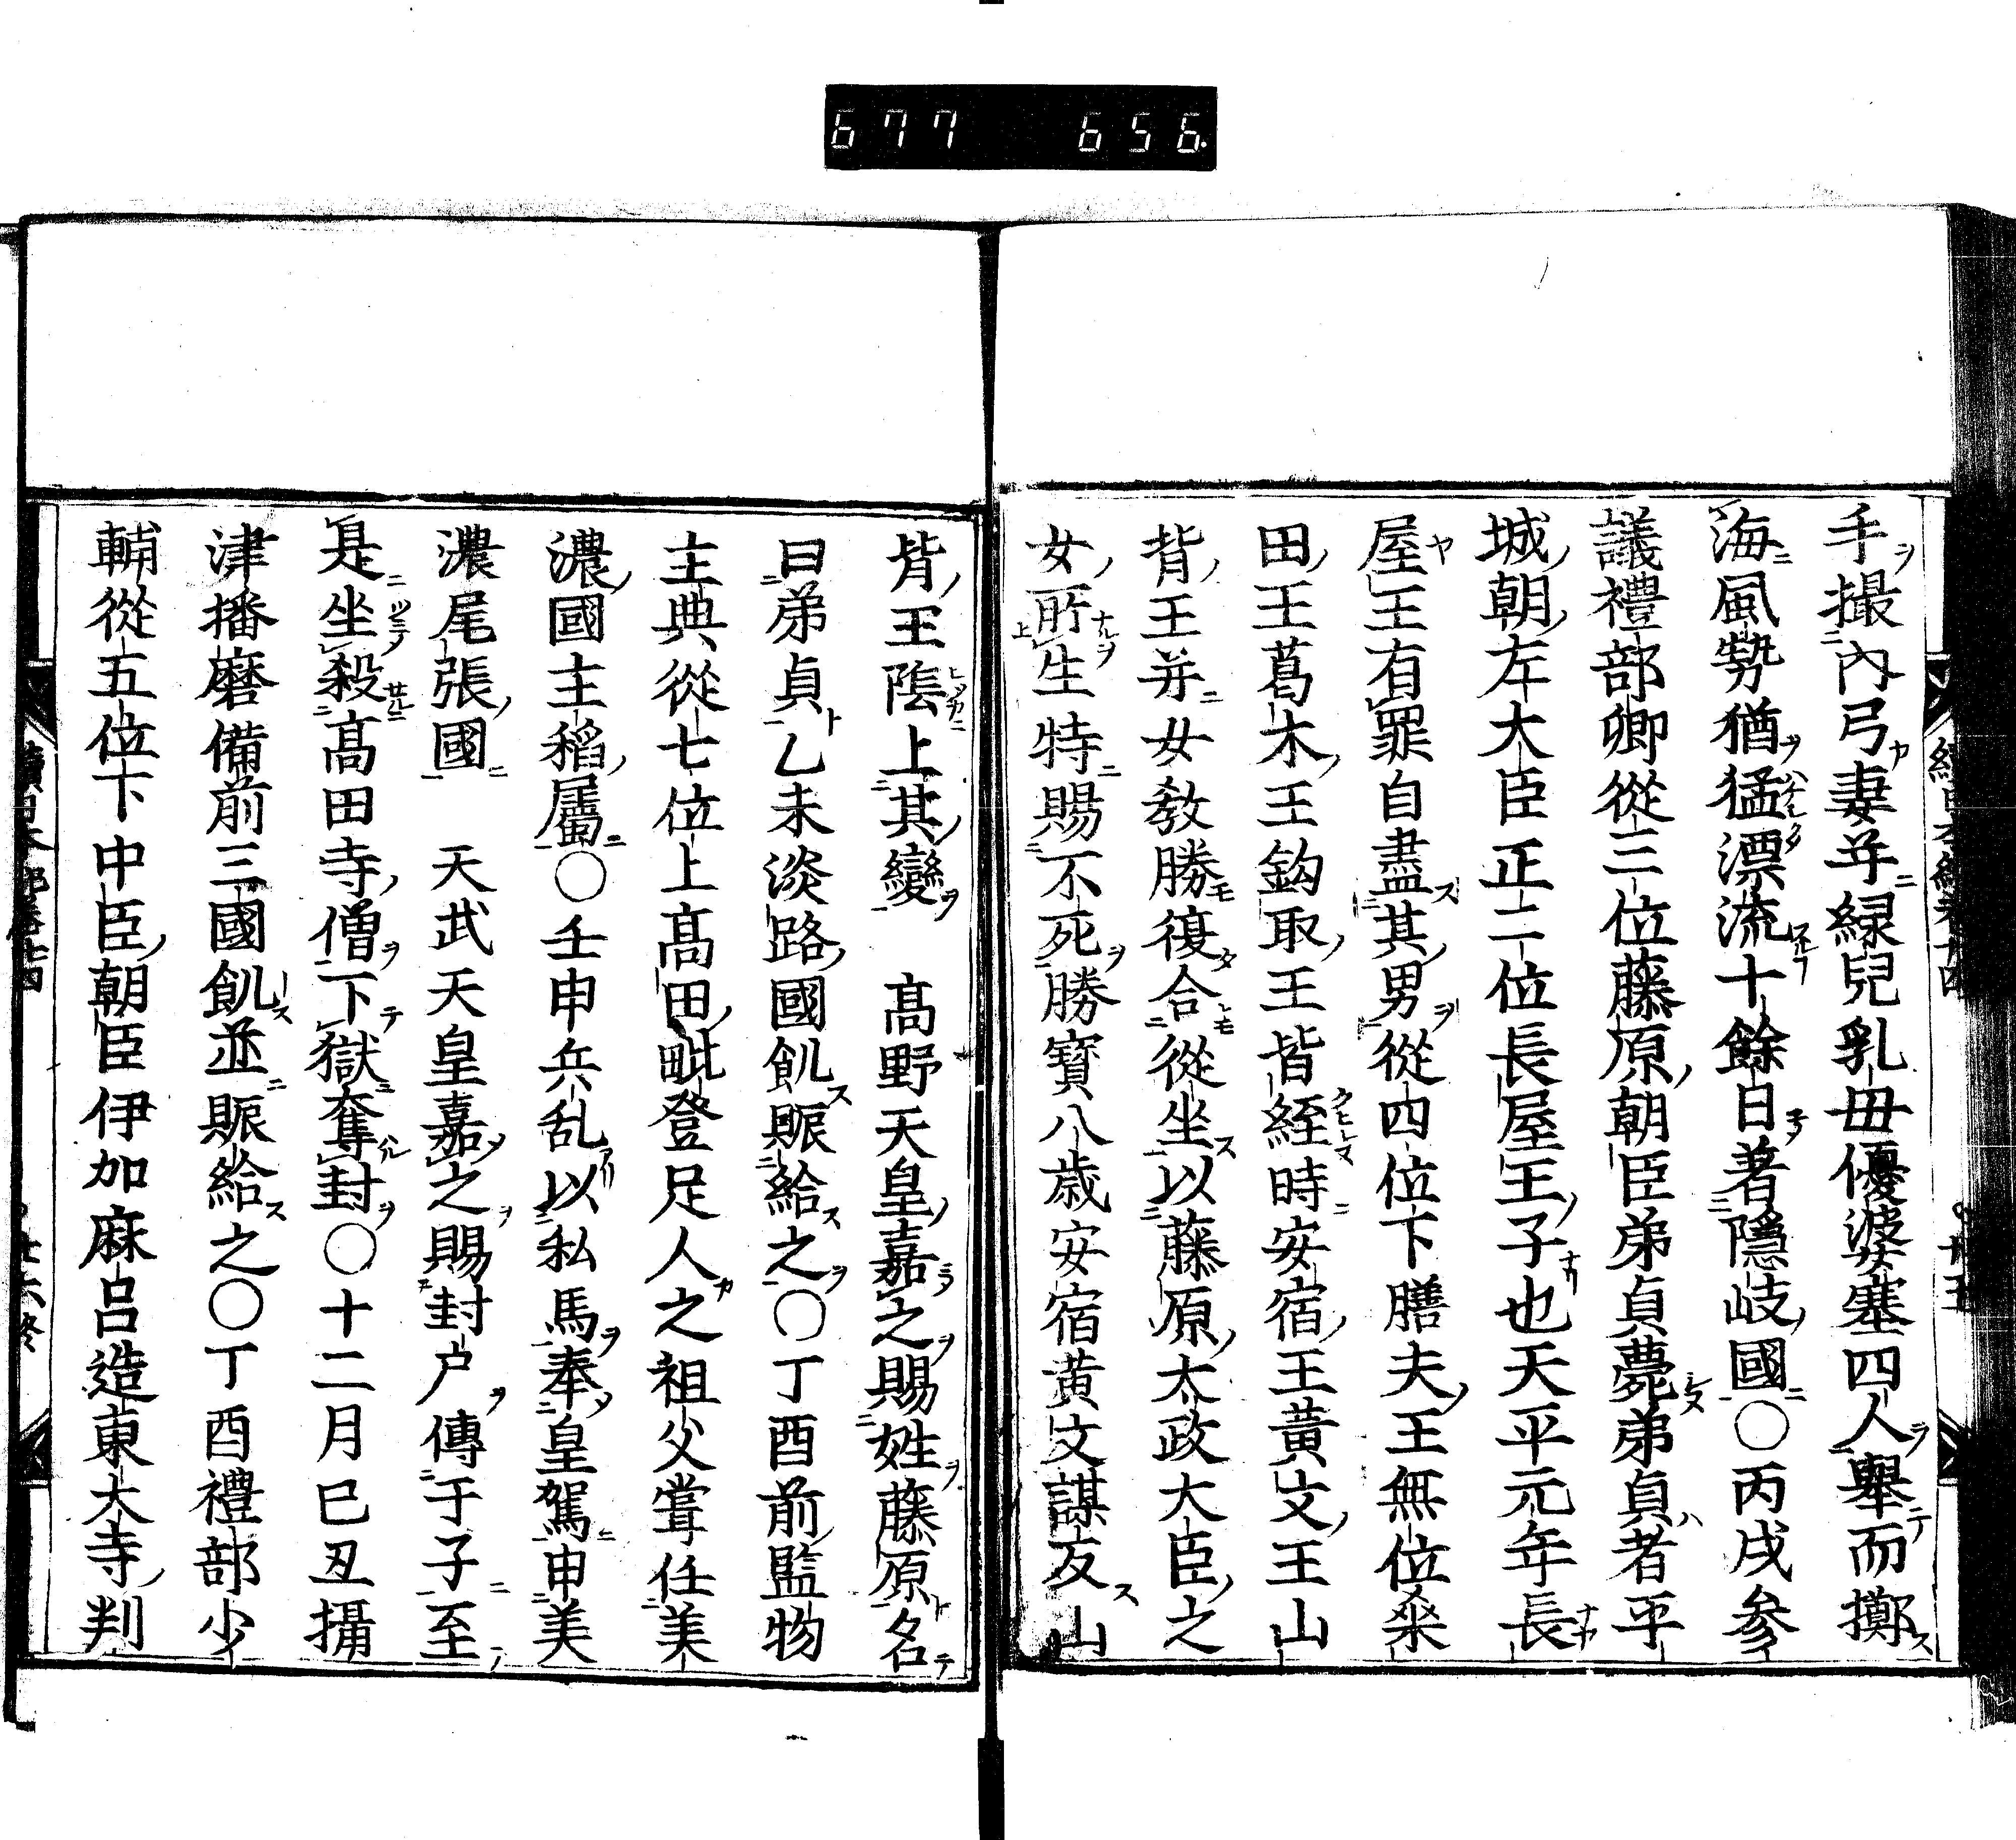 677 656.
手撮內弓妻并緑兒乳母優婆塞四人舉而擲
海風勢猶猛漂流十餘日着隱岐國○丙戌参
議禮部卿從三位藤原朝臣弟貞薨弟貞者平
城朝左大臣正二位長屋王子也天平元年長
屋王有罪自盡其男從四位下膳夫王無位桒
田王葛木王鈎取王皆絰時安宿王黃文王山
背王并女敎勝復合從坐以藤原太政大臣之
女所生特賜不死勝寳八歳安宿黃文謀反山
背王陰上其變　髙野天皇嘉之賜姓藤原名
曰弟貞乙未淡路國飢賑給之○丁酉前監物
主典從七位上髙田毗登足人之祖父嘗任美
濃國主稻屬○壬申兵乱以私馬奉皇駕申美
濃尾張國　天武天皇嘉之賜封户傳于子至
是坐殺髙田寺僧下獄奪封○十二月巳丑攝
津播磨備前三國飢並賑給之○丁酉禮部少
輔從五位下中臣朝臣伊加麻呂造東大寺判